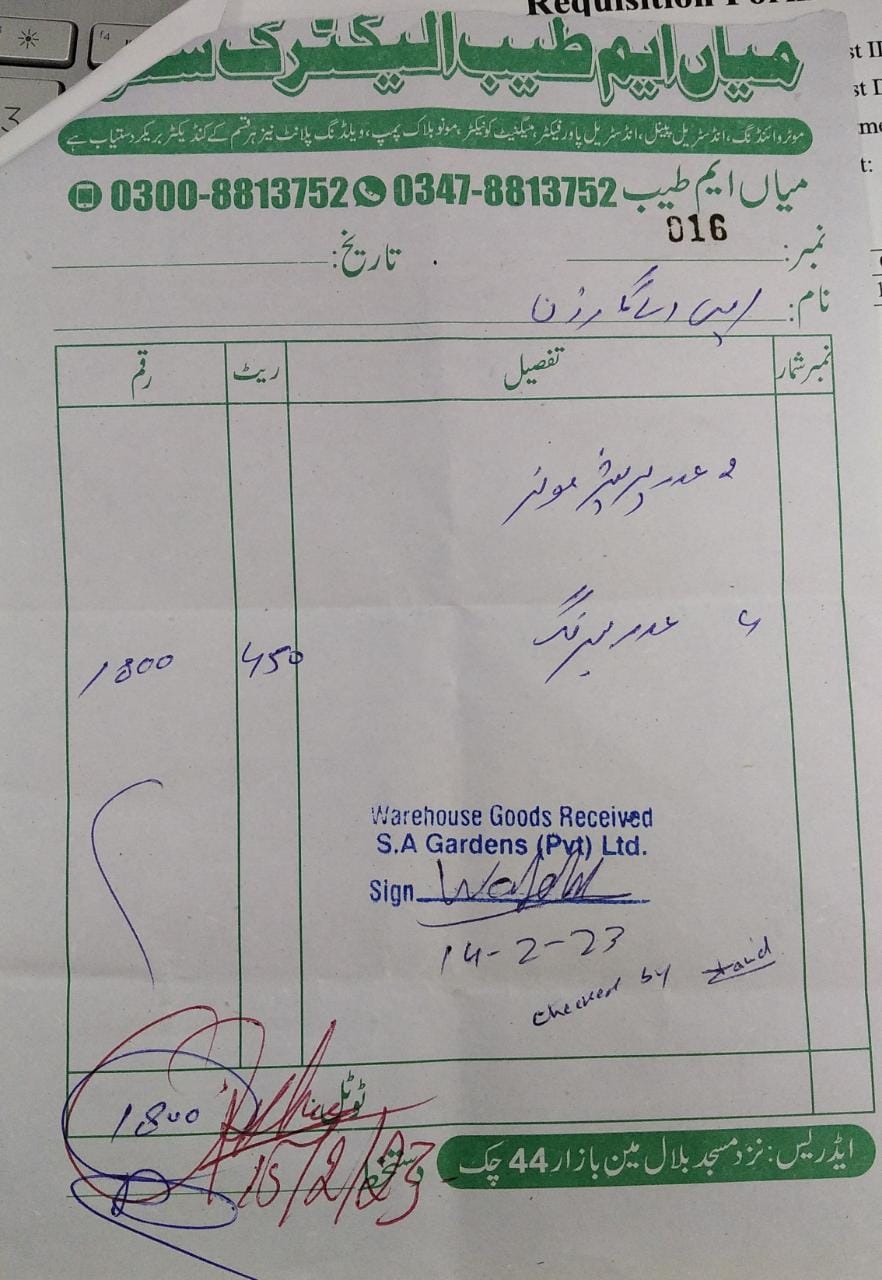 Requisition Form
میاں ایم طیب الیکٹرک سٹور
موٹر وائنڈنگ، انڈسٹریل پینل، انڈسٹریل پاور فیکٹر، میگنیٹ کونیکٹر، مونو بلاک پمپ، ویلڈنگ پلانٹ نیز ہر قسم کے کنڈیکٹر بریکر دستیاب ہے
میاں ایم طیب 0347-8813752 0300-8813752
نمبر: 016 تاریخ:
نام: ایس اے گارڈن
نمبر شمار تفصیل ریٹ رقم
2 عدد پریشر موٹر
4 عدد بیرنگ 450 1800
Warehouse Goods Received
S.A Gardens (Pvt) Ltd.
Sign
14-2-23
checked by
ٹوٹل 1800
دستخط 15/2/23
ایڈریس: نزد مسجد بلال مین بازار 44 چک